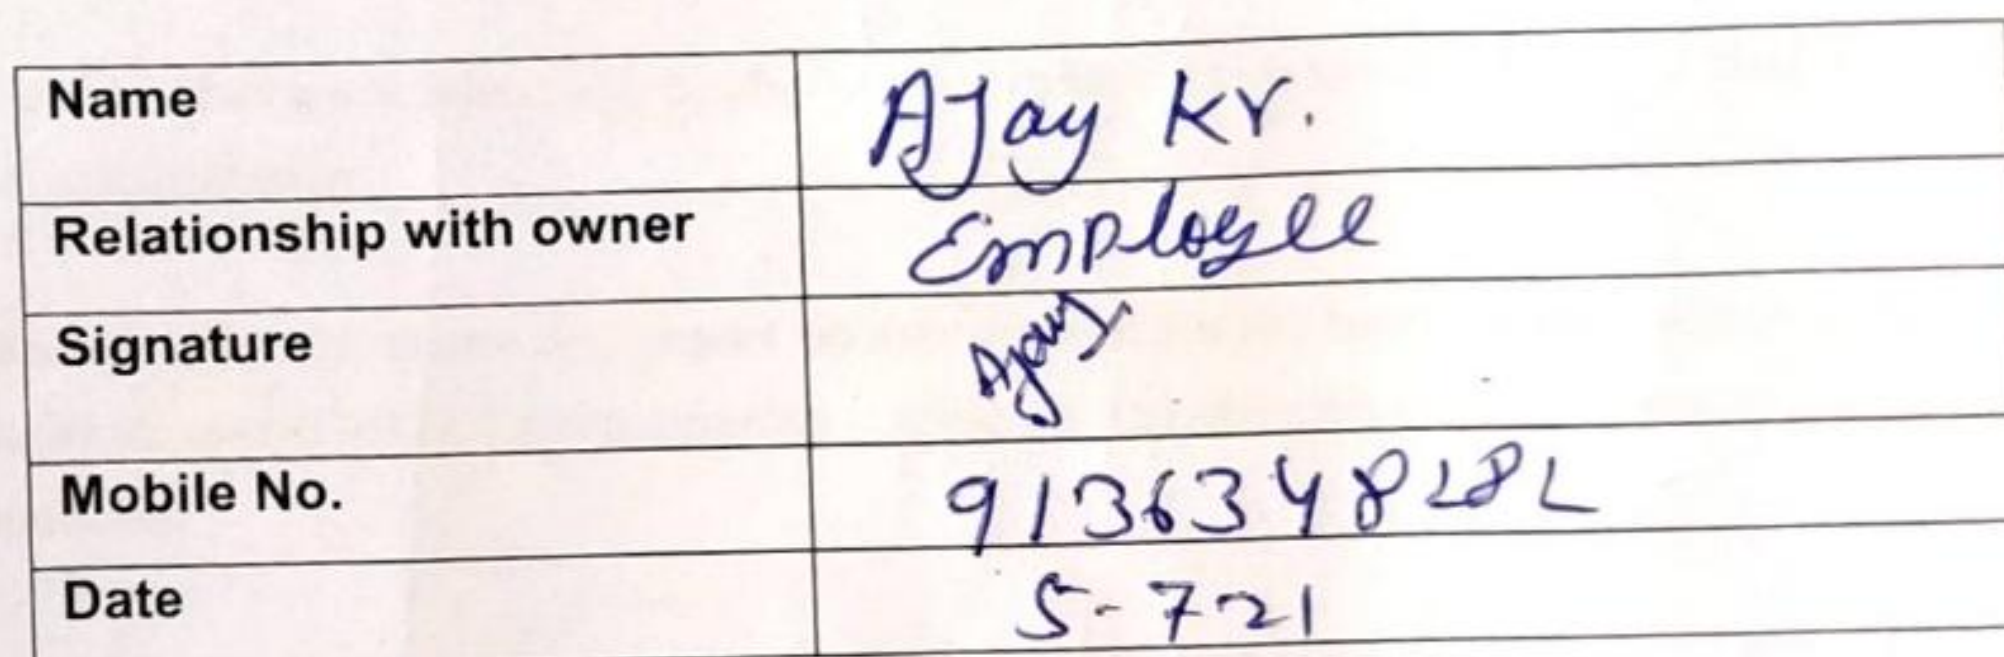 Name AJay Kr.
Relationship with owner Employee
Signature Ajay
Mobile No. 9136348282
Date 5-721